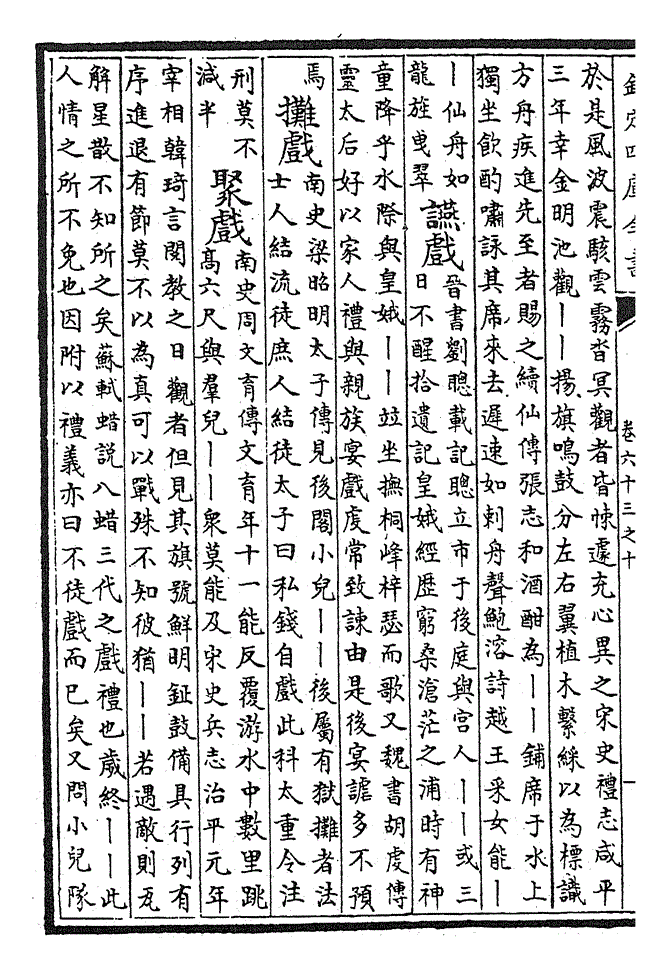 欽定四庫全書
卷六十三之十
於是風波震駭雲霧杳冥觀者皆悚遽充心異之宋史禮志咸平
三年幸金明池觀丨丨揚旗鳴鼓分左右翼植木繫綵以為標識
方舟疾進先至者賜之續仙傳張志和酒酣為丨丨鋪席于水上
獨坐飲酌嘯詠其席來去遲速如刺舟聲鮑溶詩越王采女能丨
丨仙舟如
龍旌曳翠
讌戲
晉書劉聰載記聰立市于後庭與宮人丨丨或三
日不醒拾遺記皇娥經歴窮桑滄茫之浦時有神
童降乎水際與皇娥丨丨竝坐撫桐峰梓瑟而歌又魏書胡虔傳
靈太后好以家人禮與親族宴戲虔常致諫由是後宴謔多不預
焉
攤戲
南史梁昭明太子傳見後閣小兒丨丨後屬有獄攤者法
士人結流徒庶人結徒太子曰私錢自戲此科太重令注
刑莫不
減半
聚戲
南史周文育傳文育年十一能反覆游水中數里跳
高六尺與羣兒丨丨衆莫能及宋史兵志治平元年
宰相韓琦言閱教之日觀者但見其旗號鮮明鉦鼓備具行列有
序進退有節莫不以為真可以戰殊不知彼猶丨丨若遇敵則瓦
解星散不知所之矣蘇軾蜡説八蜡三代之戲禮也歲終丨丨此
人情之所不免也因附以禮義亦曰不徒戲而已矣又問小兒隊